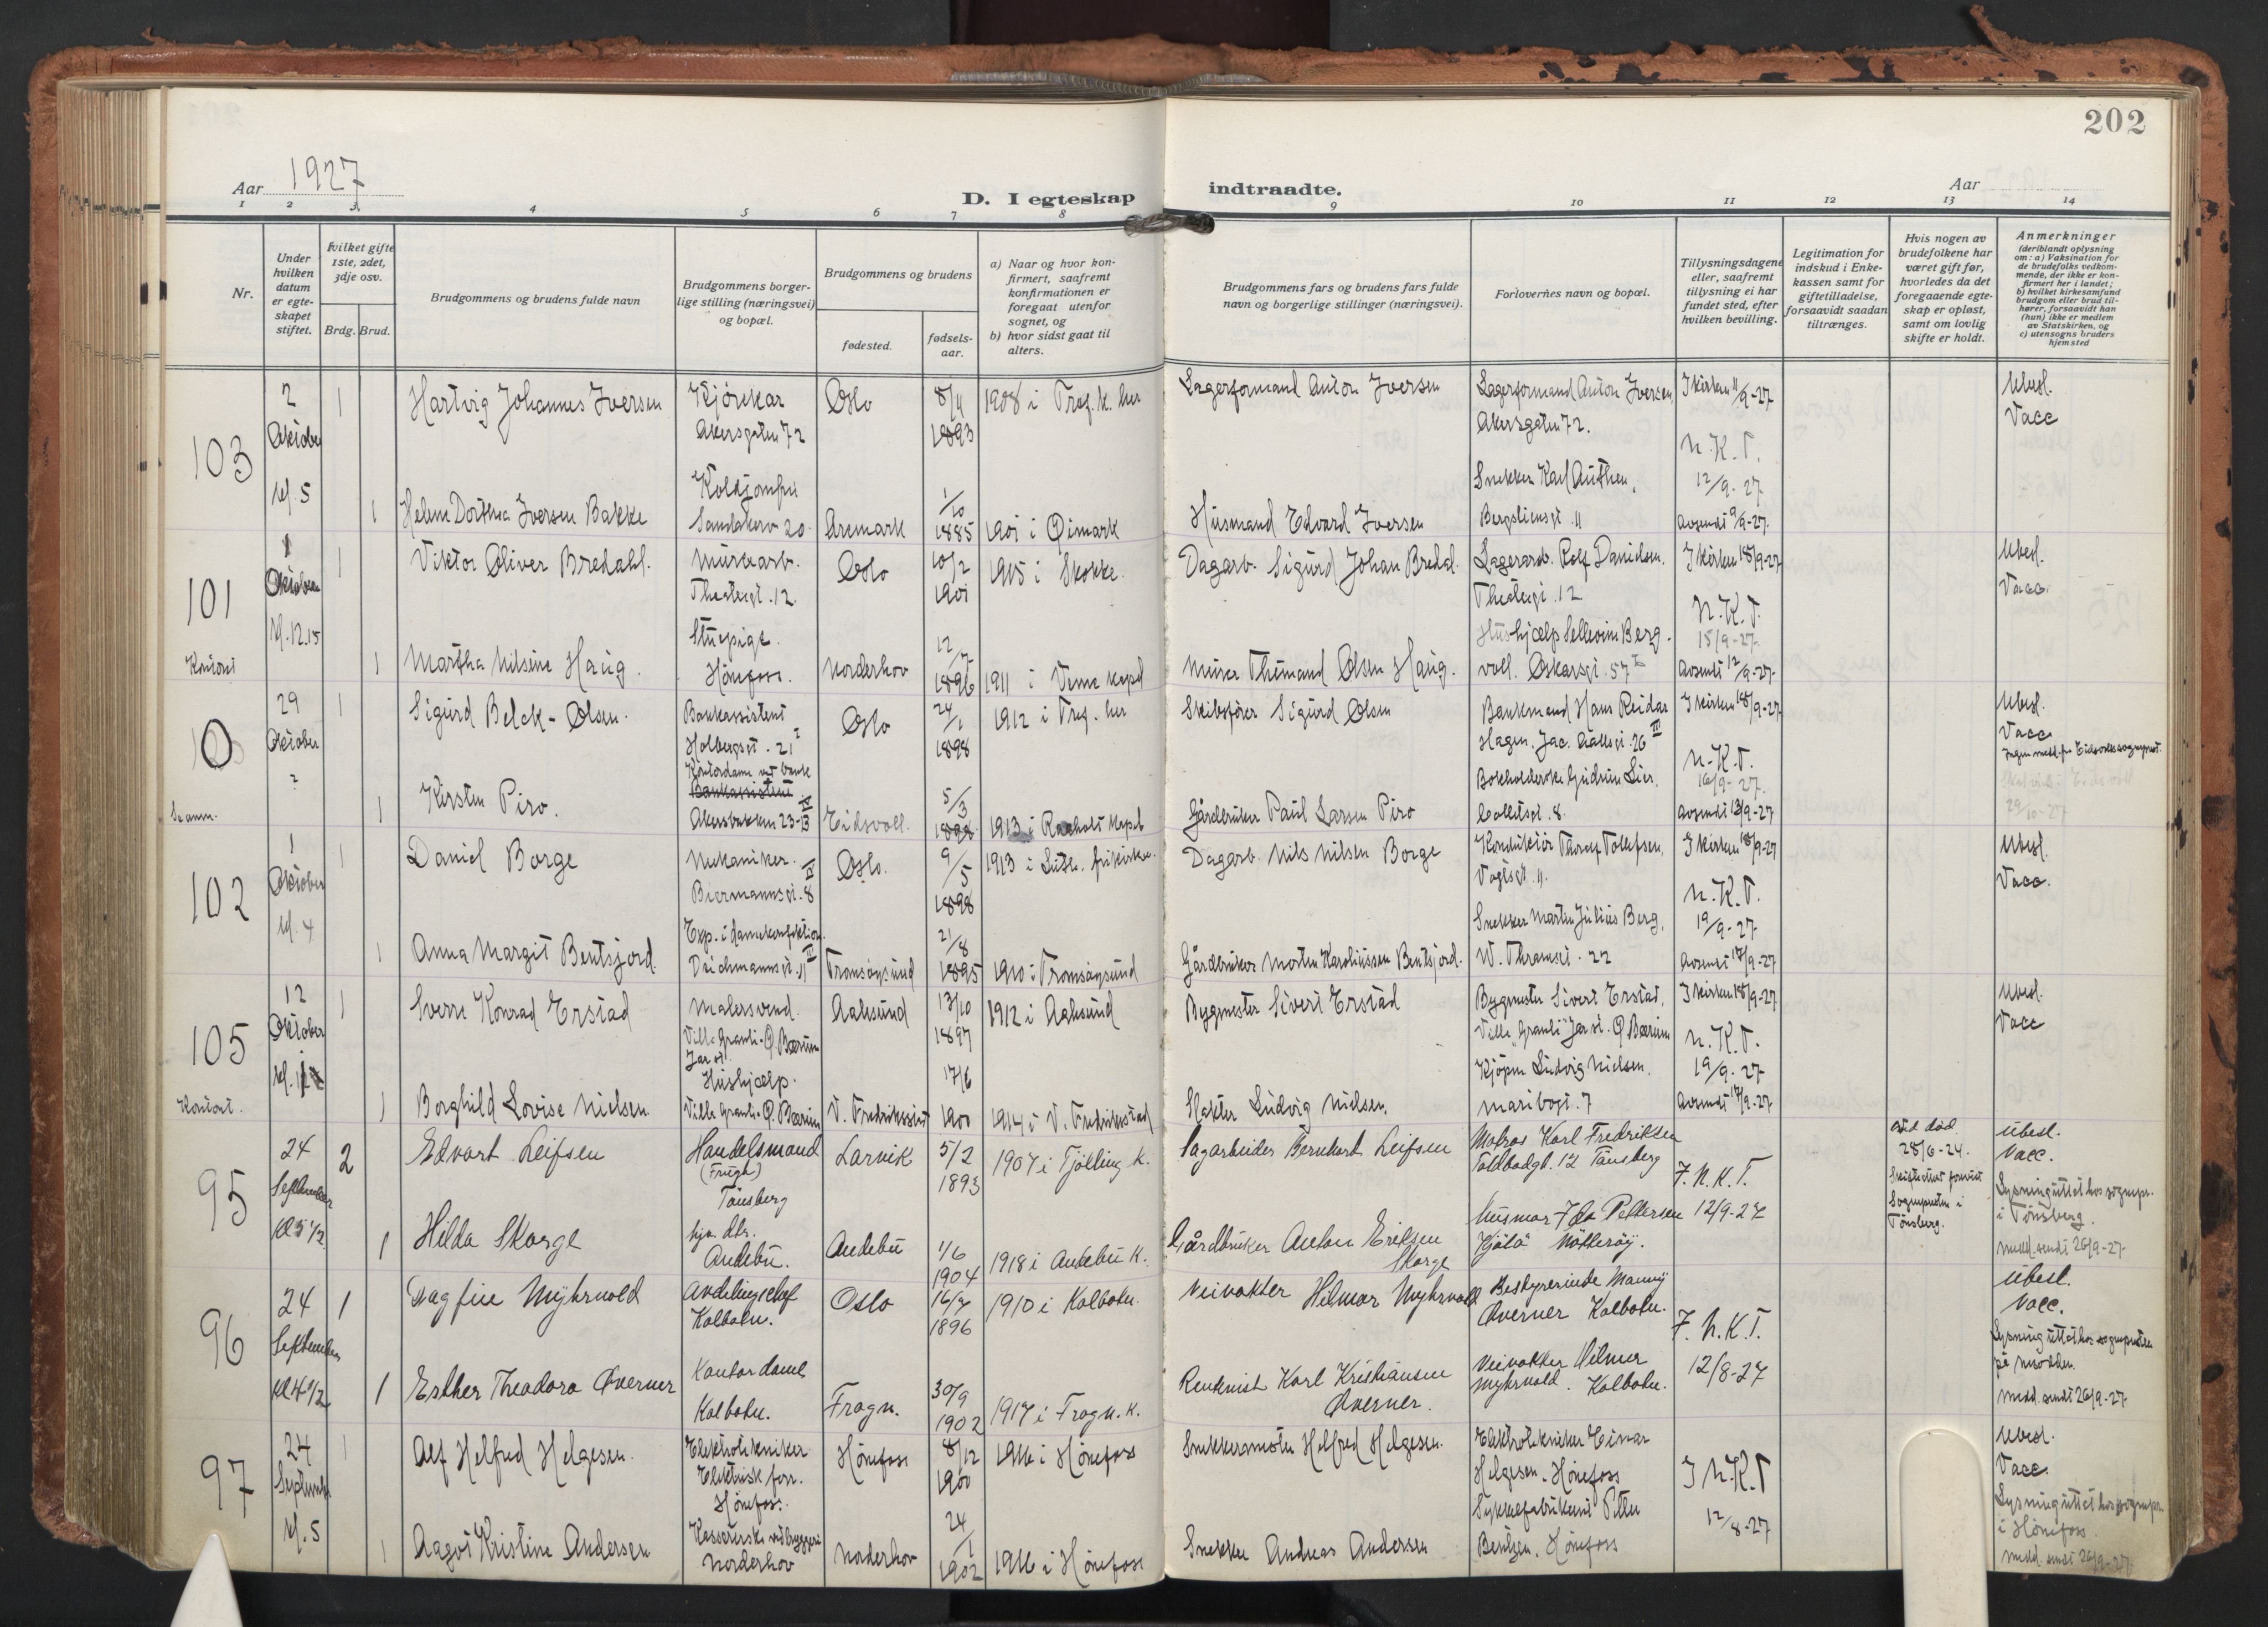 202
Aar 1927
D. I egteskap indtraadte.
Aar
1 2 3. 4 5 6 7 8 9 10 11 12 13 14
Nr.
Under hvilken datum er egteskapet stiftet.
Hvilket gifte 1ste, 2det, 3dje osv.
Brdg. Brud.
Brudgommens og brudens fulde navn
Brudgommens borgerlige stilling (næringsvei) og bopæl.
Brudgommens og brudens
fødested.
fødselsaar.
a) Naar og hvor konfirmert, saafremt konfirmationen er foregaat utenfor sognet, og
b) hvor sidst gaat til alters.
Brudgommens fars og brudens fars fulde navn og borgerlige stillinger (næringsvei).
Forlovernes navn og bopæl.
Tillysningsdagene eller, saafremt tillysning ei har fundet sted, efter hvilken bevilling.
Legitimation for indskud i Enkekassen samt for giftetilladelse, forsaavidt saadan tiltrænges.
Hvis nogen av brudefolkene har været gift før, hvorledes da det foregaaende egteskap er opløst, samt om lovlig skifte er holdt.
Anmerkninger
(deriblandt oplysning om: a) Vaksination for de brudefolks vedkommende, der ikke er konfirmert her i landet; b) hvilket kirkesamfund brudgom eller brud tilhører, forsaavidt han (hun) ikke er medlem av Statskirken, og c) utensogns bruders hjemsted
103
2 Oktober kl. 5
1 Hartvig Johannes Iversen
Kjørekar Akersgaten 72
Oslo
8/11 1893
1908 i Tref. k. her
Lagerformand Anton Iversen
Lagerformand Anton Iversen, Akersgaten 72.
I kirken 11/9-27
Ubesl. Vacc
1 Helene Dorthea Iversen Bakke
Koldjomfru Sandakerv 20.
Aremark
1/10 1885
1901 i Øimark
Husmand Edvard Iversen
Snekker Karl Authen, Bergsliensgt 11
N.K.T. 12/9-27 Avsendt 9/9-27.
101
1 Oktober kl. 12.15
Kontoret
1 Viktor Oliver Bredahl.
Murerarb. Theatergt. 12.
Oslo
10/2 1901
1915 i Skokke.
Dagarb. Sigurd Johan Bredal.
Lagerarb. Rolf Danielsen. Theatergt. 12
I kirken 18/9-27
Ubesl. Vacc.
1 Martha Nilsine Haug.
Stuepige. Hønefoss.
Norderhov
12/7 1896
1911 i Veme kapel
Murer Themand Olsen Haug.
Hushjælp Sellevine Bergvoll. Oskarsgt. 57 I
N.K.T. 15/9-27. Avsendt 12/9-27.
0
29 Oktober ?
Se anm.
1 Sigurd Belck-Olsen.
Bankassistent Holbergsgt. 21 I
Oslo
24/1 1898
1912 i Tref. her
Skibsfører Sigurd Olsen
Bankmand Hans Reidar Hagen, Jac. Aallsgt. 26 III
I kirken 18/9-27
Ubesl. Vacc
Ingen medd. fra Eidsvolls sogneprest.
29/10-27
1 Kirsten Piro.
Kontordame ved bank
Bankassistent
Akersbakken 23
Eidsvoll.
5/3
1913 i Raaholt kapel
Gårdbruker Paul Larsen Piro
Bokholderske Gudrun Lier, Colletsgt. 8.
N.K.T. 16/9-27. Avsendt 13/9-27
102
1 Oktober kl. 4
1 Daniel Borge
Mekaniker. Biermannsgt. 8
Oslo.
9/5 1898
1913 i Luth. frikirke.
Dagarb. Nils Nilsen Borge
Konduktør Thoralf Tollefsen, Vogtsgt. 11.
I kirken 18/9-27
Ubesl. Vacc.
1 Anna Margit Bentsjord.
Exp. i damekonfektion. Deichmannsgt. 11 III
Tromsøysund
21/8 1895
1910 i Tromsøysund
Gårdbruker Morten Karoliussen Bentsjord.
Snekker Martin Julius Berg, W. Thranesgt. 22
N.K.T. 19/9-27. Avsendt 17/9-27
105
12 Oktober kl. 12
Kontoret.
1 Sverre Konrad Erstad
Malersvend. Villa Granli. Ø Bærum Jar st.
Aalesund
13/10 1897
1912 i Aalesund
Bygmester Sivert Erstad
Bygmester Sivert Erstad, Villa "Granli" Jar st. Ø Bærum
I kirken 18/9-27
Ubesl. Vacc
1 Borghild Lovise Nielsen
Hushjælp. Villa Granli. Ø. Bærum
V. Fredrikstad
17/6 1900
1914 i V. Fredrikstad
Slakter Ludvig Nielsen.
Kjøpm Ludvig Nielsen. Maribogt. 7
N.K.T. 19/9-27 Avsendt 17/9-27
95
24 September kl 5 1/2
2 Edvart Leifsen
Handelsmand (Frugt) Tønsberg
Larvik
5/2 1893
1907 i Tjølling k.
Sagarbeider Bernhart Leifsen
Matros Karl Fredriksen Toldbodgt. 12 Tønsberg
F.N.K.T. 12/9-27
død 28/6-24. Skifteattest Sognepresten i Tønsberg.
Ubesl. Vacc. Lysning uttat hos sognepr. i Tønsberg. Medd. sendt 26/9-27
1 Hilda Skorge
hja. dtr. Andebu.
Andebu
1/6 1904
1918 i Andebu K.
Gårdbruker Anton Eriksen Skorge
Husmor Ida Pettersen Kjølø Nøtterøy.
96
24 September kl 4 1/2
1 Dagfin Myhrvold
Avdelingschef Kolbotn.
Oslo
16/7 1896
1910 i Kolbotn.
Veivokter Hilmar Myhrvold
Bestyrerinde Manny Qverner Kolbotn.
F.N.K.T. 12/8-27
Ubesl. Vacc. Lysning uttat hos sognepresten på Nordden. Medd. sendt 26/9-27
1 Esther Theodora Qverner
Kontordame Kolbotn.
Frogn.
30/9 1902
1917 i Frogn. K.
Karl Kristiansen Qverner.
Veivokter Hilmar Myhrvold. Kolbotn.
97
24 September kl. 5
1 Alf Helfred Helgesen.
Elektrotekniker Elektrisk forr. Hønefoss.
Hønefoss
8/12 1900
1916 i Hønefoss
Snekkermester Helfred Helgesen.
Elektrotekniker Einar Helgesen. Hønefoss
I N.K.T 12/8-27
Ubesl. Vacc. Lysning uttat hos sognepr. i Hønefoss. Medd. sendt 26/9-27.
1 Aagot Kristine Andersen
Kassererske ved bryggeri Norderhov
Norderhov
24/1 1902
1916 i Hønefoss
Snekker Andreas Andersen
Sykkelfabrikant Petter Bentzen. Hønefoss